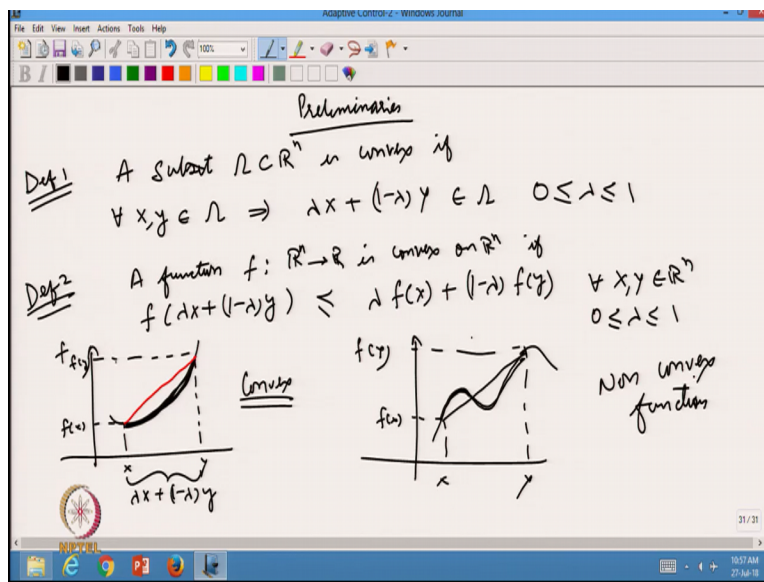 Adaptive Control-2 - Windows Journal
File Edit View Insert Actions Tools Help
100%
B I
Preliminaries
Def 1 A subset Ω ⊂ ℝⁿ is convex if
∀ x, y ∈ Ω ⇒ λx + (1-λ) y ∈ Ω 0 ≤ λ ≤ 1
Def 2 A function f: ℝⁿ → ℝ is convex on ℝⁿ if
f(λx + (1-λ)y) ≤ λ f(x) + (1-λ) f(y) ∀ x, y ∈ ℝⁿ
0 ≤ λ ≤ 1
f
f(y)
f(x)
x y
λx + (1-λ)y
Convex
f(y)
f(x)
x y
Non convex
function
31 / 31
NPTEL
10:57 AM
27-Jul-18